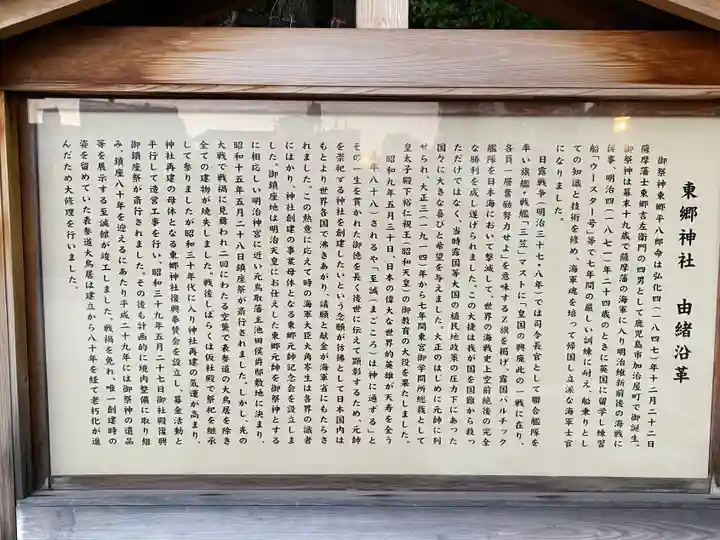 東郷神社　由緒沿革
御祭神東郷平八郎命は弘化四(一八四七)年十二月二十二日
薩摩藩士東郷吉左衛門の四男として鹿児島市加治屋町で御誕生。
御祭神は幕末十九歳で薩摩藩の海軍に入り明治維新前後の海戦に
従事、明治四(一八七一)年二十四歳のときに英国に留学し練習
船「ウースター号」等で七年間の厳しい訓練に耐え、船乗りとし
ての知識と技術を修め、海軍魂を培って帰国し立派な海軍士官
になりました。
日露戦争(明治三十七・八年)では司令長官として聯合艦隊を
率い旗艦・戦艦「三笠」マストに「皇国の興廃此の一戦に在り、
各員一層奮励努力せよ」を意味するZ旗を掲げ、露国バルチック
艦隊を日本海において撃滅して、世界の海戦史上空前絶後の完全
な勝利を成し遂げられました。この大捷は我が国を国難から救っ
ただけではなく、当時露国等大国の植民地政策の圧力下にあった
国々に大きな喜びと希望を与えました。大正のはじめに元帥に列
せられ、大正三(一九一四)年から七年間東宮御学問所総裁として
皇太子殿下裕仁親王(昭和天皇)の御教育の大役を果たしました。
昭和九年五月三十日、日本の偉大な世界的英雄が天寿を全う
(享年八十八)されるや、「至誠(まごころ)は神に通ずる」と
その一生を貫かれた御徳を長く後世に伝えて顕彰するため、元帥
を崇祀する神社を創建したいという念願が彷彿として日本国内は
もとより世界各国で沸きあがり、請願と献金が海軍省にもたらさ
れました。この熱意に応えて時の海軍大臣大角岑生は各界の識者
にはかり、神社創建の事業母体となる東郷元帥記念会を設立しま
した。御鎮座地は明治天皇にお仕えした東郷元帥を御祭神とする
に相応しい明治神宮に近い元鳥取藩主池田侯爵邸敷地に決まり、
昭和十五年五月二十八日鎮座祭が斎行されました。しかし、先の
大戦で戦禍に見舞われ二回にわたる空襲で表参道の大鳥居を除き
全ての建物が焼失しました。戦後しばらくは仮社殿で祭祀を継承
して参りましたが昭和三十年代に入り神社再建の気運が高まり、
神社再建の母体となる東郷神社復興奉賛会を設立し、募金活動と
平行して造営工事を行い、昭和三十九年五月二十七日御社殿復興
御鎮座祭が斎行されました。その後も計画的に境内整備に取り組
み、鎮座八十年を迎えるにあたり平成二十九年には御祭神の遺品
等を展示する至誠館が竣工しました。戦禍を免れ、唯一創建時の
姿を留めていた表参道大鳥居は建立から八十年を経て老朽化が進
んだため大修理を行いました。